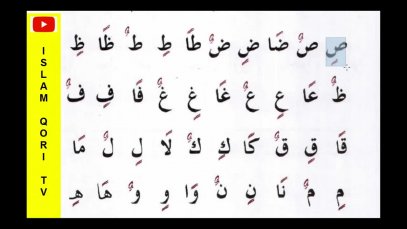 صِ صٌ ضَا ضِ ضٌ طَا طِ طٌ ظَا ظِ
ظٌ عَا عِ عٌ غَا غِ غٌ فَا فِ فٌ
قَا قِ قٌ كَا كِ كٌ لَا لِ لٌ مَا
مِ مٌ نَا نِ نٌ وَا وِ وٌ هَا هِ
ISLAM QORI TV